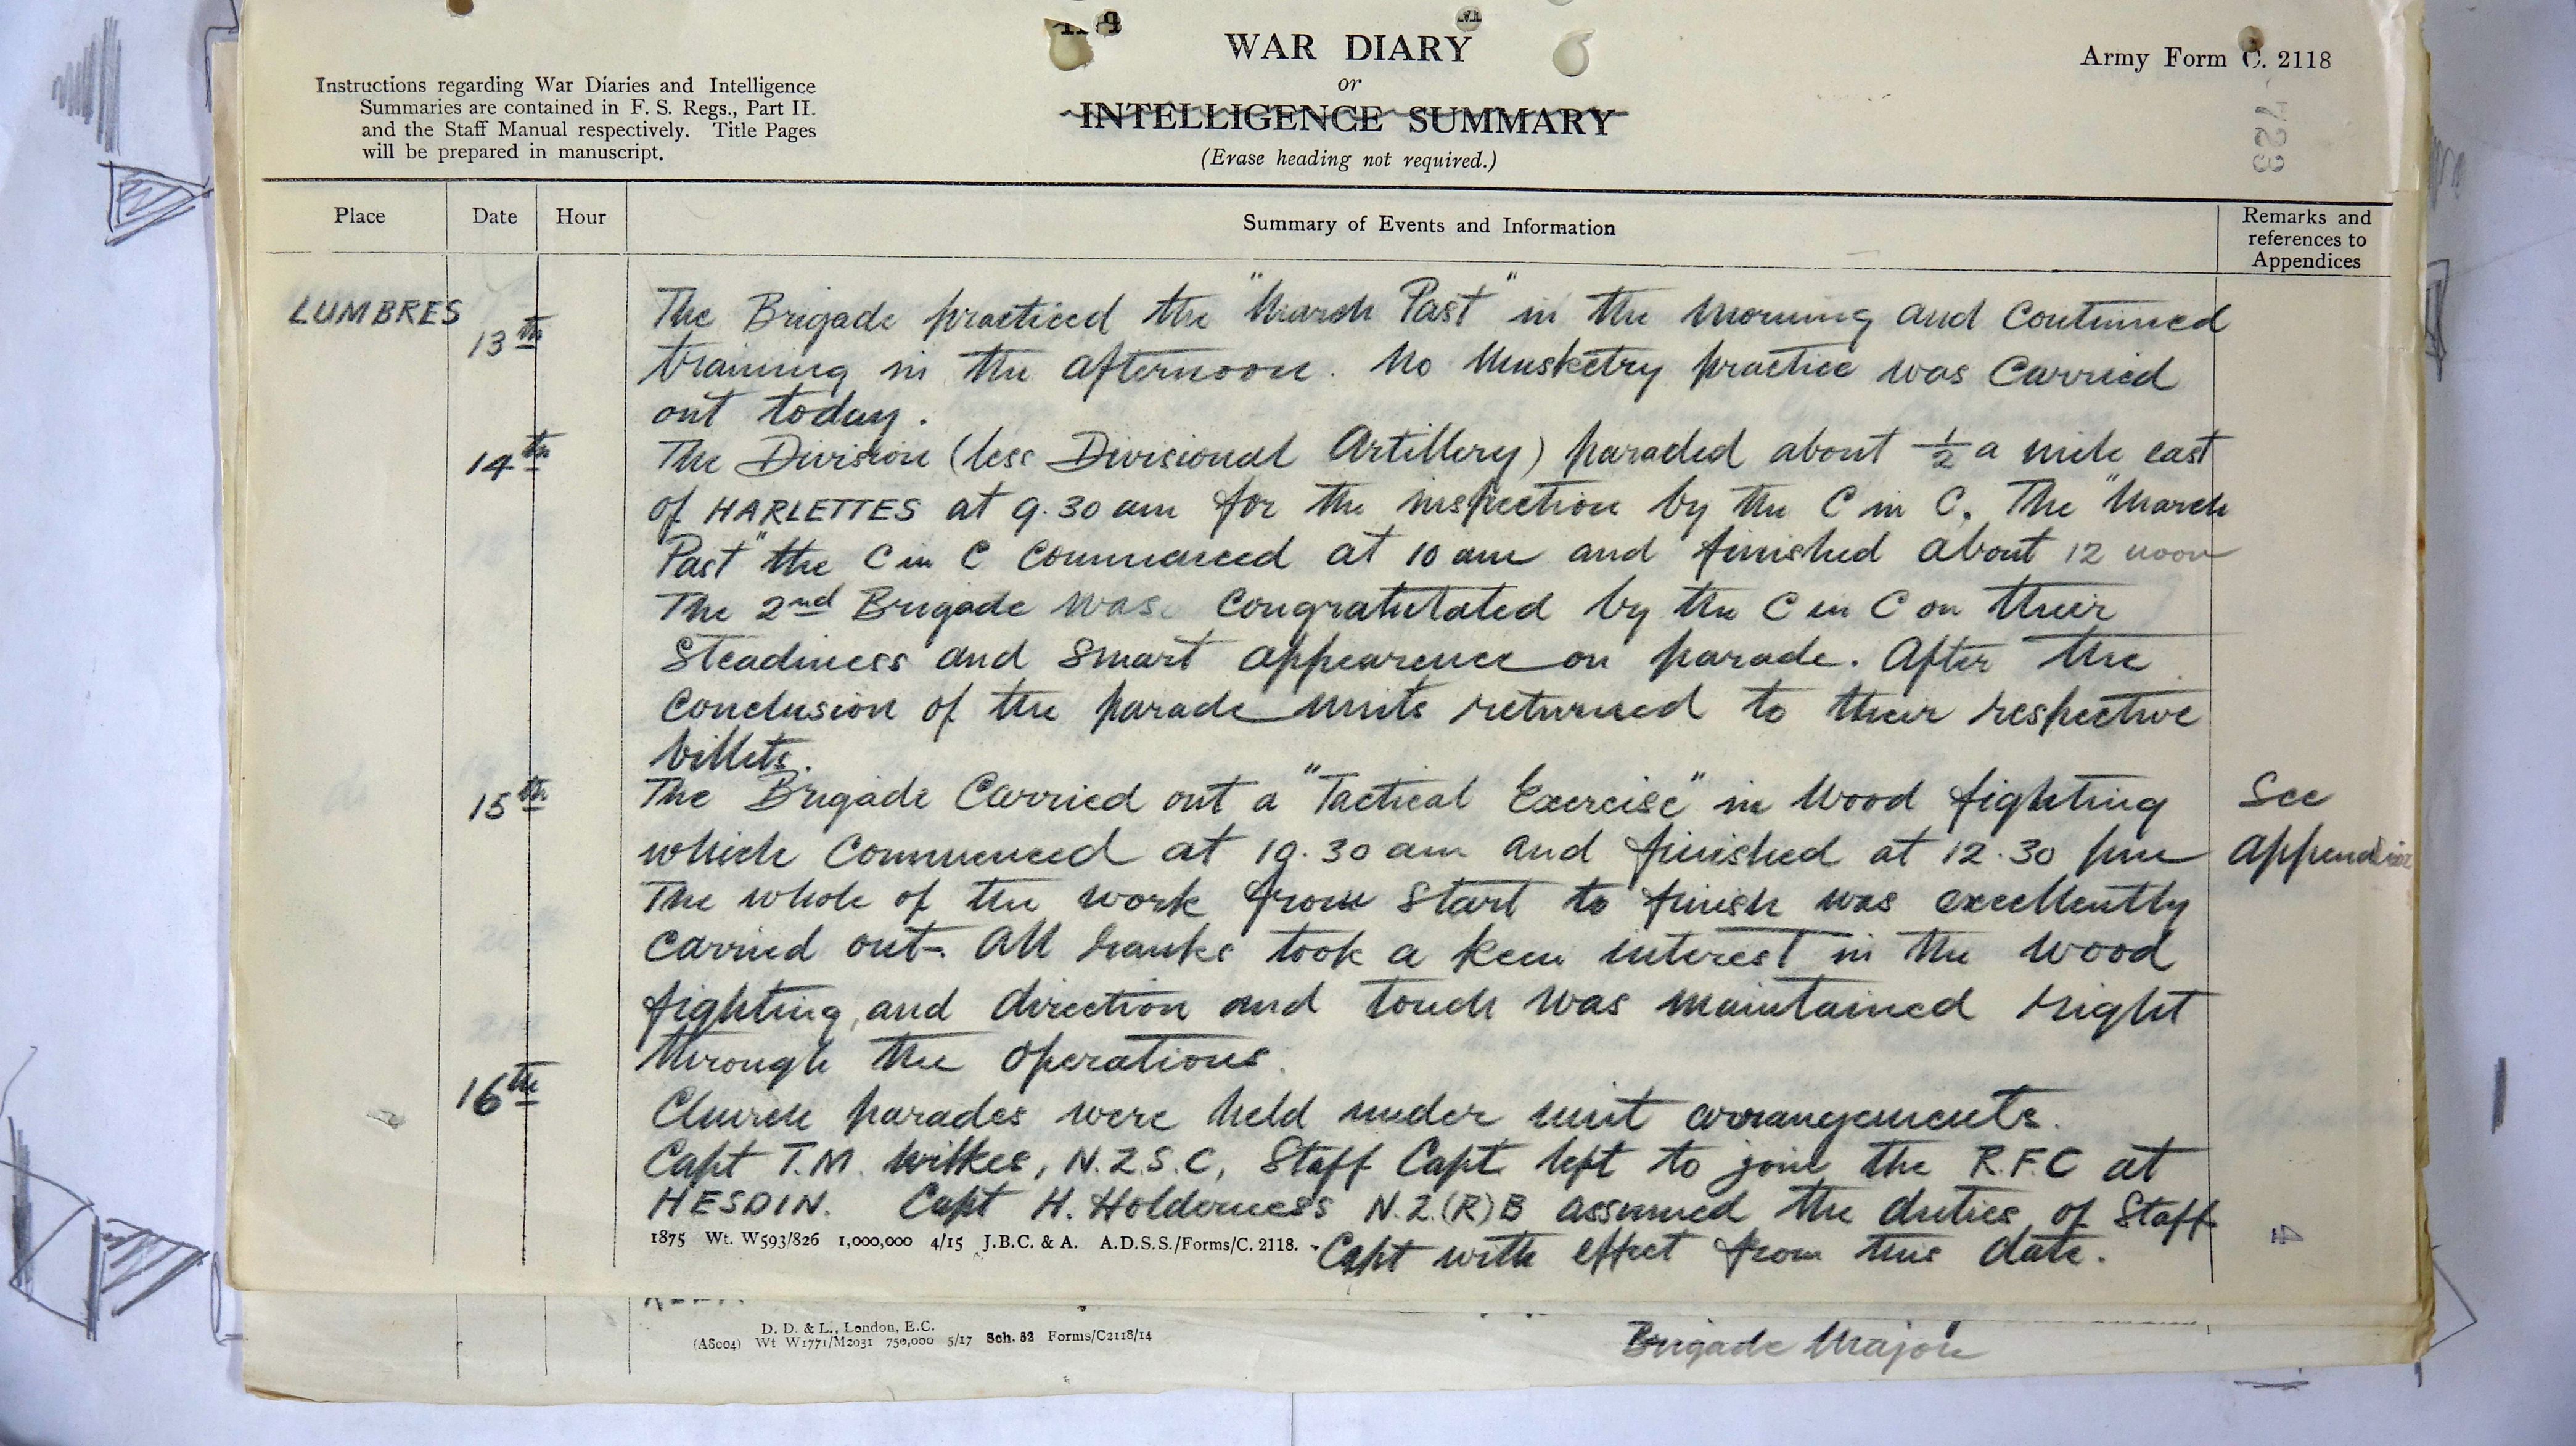 WAR DIARY
or
INTELLIGENCE SUMMARY
(Erase heading not required.)
Army Form C. 2118
Instructions regarding War Diaries and Intelligence
Summaries are contained in F. S. Regs., Part II.
and the Staff Manual respectively. Title Pages
will be prepared in manuscript.
Place Date Hour Summary of Events and Information Remarks and
references to
Appendices
LUMBRES 13th The Brigade practiced the "March Past" in the morning and continued
training in the afternoon. No Musketry practice was carried
out today.
14th The Division (less Divisional Artillery) paraded about ½ a mile east
of HARLETTES at 9.30 am for the inspection by the C in C. The "March
Past" the C in C commenced at 10 am and finished about 12 noon
The 2nd Brigade was congratulated by the C in C on their
steadiness and smart appearence on parade. After the
conclusion of the parade units returned to their respective
billets.
15th The Brigade carried out a "Tactical Exercise" in wood fighting See
which commenced at 19.30 am and finished at 12.30 pm
The whole of the work from start to finish was excellently
carried out. All ranks took a keen interest in the wood
fighting, and direction and touch was maintained right
through the operations.
16th Church parades were held under unit arrangements.
Capt T.M. Wilkes, N.Z.S.C, Staff Capt left to join the R.F.C at
HESDIN. Capt H. Holderness N.Z.(R)B assumed the duties of Staff
1875 Wt. W593/826 1,000,000 4/15 J.B.C. & A. A.D.S.S./Forms/C. 2118. Capt with effect from this date.
D. D. & L., London, E.C.
(A8004) Wt W1771/M2031 750,000 5/17 Sch. 52 Forms/C2118/14
Brigade Major